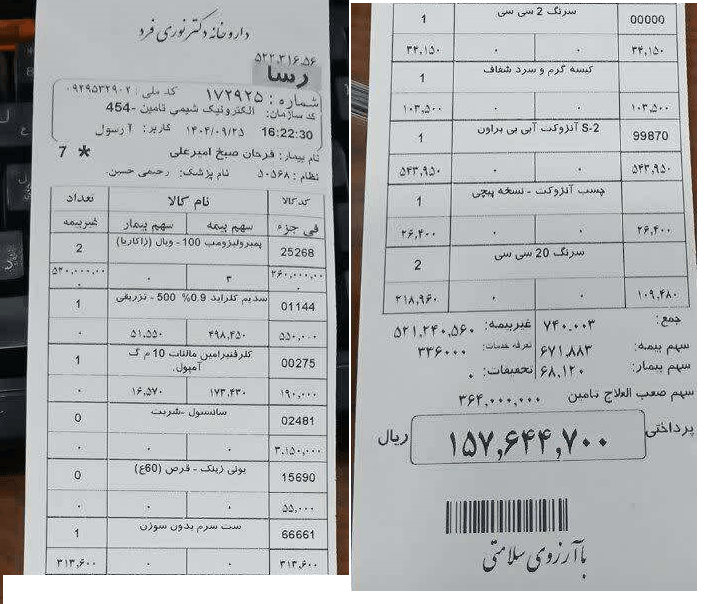 داروخانه دکتر نوری فرد
۵۲۲,۳۱۶.۵۶
رسا
شماره : ۱۷۲۹۲۵ کد ملی : ۰۹۲۹۵۳۲۹۰۲
کد سازمان: الکترونیک شیمی تامین -454
16:22:30 ۱۴۰۴/۰۹/۲۵ کاربر: آ رسول
نام بیمار: فرحان صیخ امیرعلی * 7
نظام : ۵۰۵۶۸ نام پزشک: رحیمی حسین
کد کالا نام کالا تعداد
فی جزء سهم بیمه سهم بیمار غیربیمه
25268 پمبرولیزومب 100 - ویال (زاکاریا) 2
۲۶۰,۰۰۰,۰۰۰ ۳ ۰ ۵۲۰,۰۰۰,۰۰۰
01144 سدیم کلراید 0.9% 500 - تزریقی 1
۵۵۰,۰۰۰ ۴۹۸,۴۵۰ ۵۱,۵۵۰ ۰
00275 کلرفنیرامین مالئات 10 م گ آمپول. 1
۱۹۰,۰۰۰ ۱۷۳,۴۳۰ ۱۶,۵۷۰ ۰
02481 سانسول -شربت 0
۳,۱۵۰,۰۰۰ ۰ ۰ ۰
15690 یونی زینک - قرص (60ع) 0
۵۵,۰۰۰ ۰ ۰ ۰
66661 ست سرم بدون سوزن 1
۳۱۳,۶۰۰ ۰ ۰ ۳۱۳,۶۰۰
00000 سرنگ 2 سی سی 1
۳۴,۱۵۰ ۰ ۰ ۳۴,۱۵۰
کیسه گرم و سرد شفاف 1
۱۰۳,۵۰۰ ۰ ۰ ۱۰۳,۵۰۰
99870 S-2 آنژوکت آبی بی براون 1
۵۴۳,۹۵۰ ۰ ۰ ۵۴۳,۹۵۰
چسب آنژوکت - نسخه پیچی 1
۲۶,۴۰۰ ۰ ۰ ۲۶,۴۰۰
سرنگ 20 سی سی 2
۱۰۹,۴۸۰ ۰ ۰ ۲۱۸,۹۶۰
جمع: ۷۴۰,۰۰۳ غیربیمه: ۵۲۱,۲۴۰,۵۶۰
سهم بیمه: ۶۷۱,۸۸۳ تعرفه خدمات: ۳۳۶۰۰۰
سهم بیمار: ۶۸,۱۲۰ تخفیفات: ۰
سهم صعب العلاج تامین ۳۶۴,۰۰۰,۰۰۰
پرداختی: ۱۵۷,۶۴۴,۷۰۰ ریال
با آرزوی سلامتی